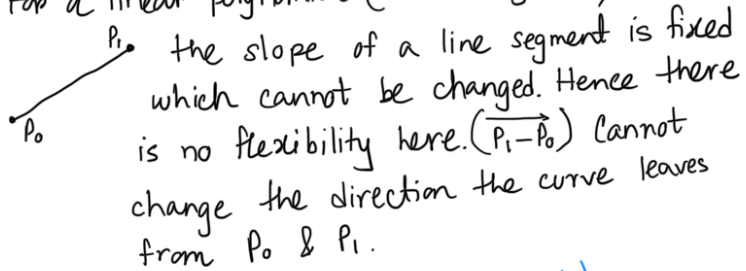 For a linear
P₁ the slope of a line segment is fixed
which cannot be changed. Hence there
P₀ is no flexibility here. (P₁-P₀) Cannot
change the direction the curve leaves
from P₀ & P₁.